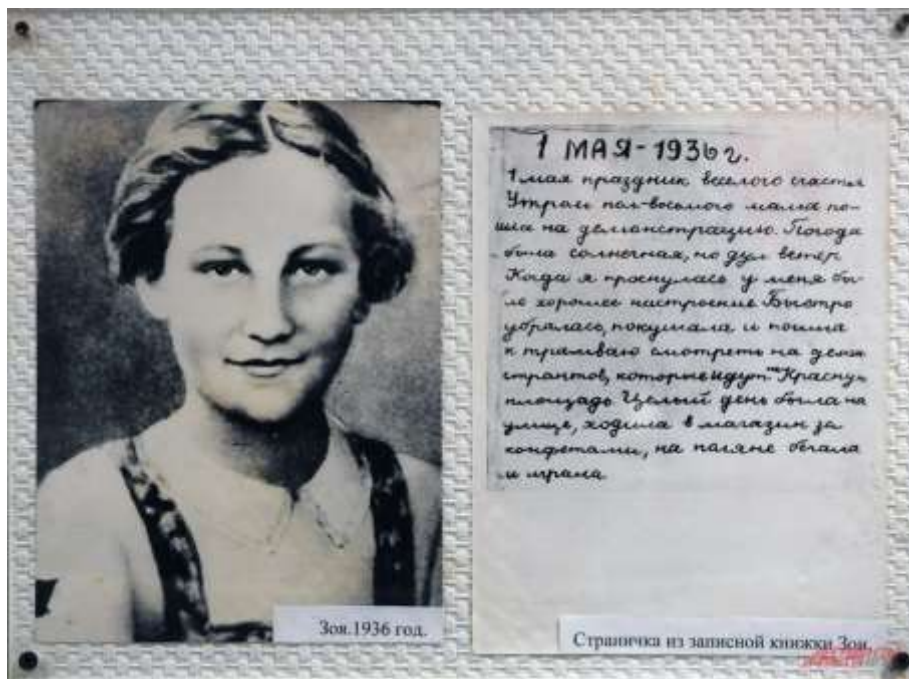 1 МАЯ-1936 г.
1 мая праздник веселого счастья
Утром пол-восьмого мама по-
шла на демонстрацию. Погода
была солнечная, но дул ветер
Когда я проснулась у меня бы-
ло хорошее настроение Быстро
убралась, покушала и пошла
к трамваю смотреть на демон
странтов, которые идут на Красную
площадь Целый день была на
улице, ходила в магазин за
конфетами, на поляне бегала
и играла
Зоя.1936 год.
Страничка из записной книжки Зои.